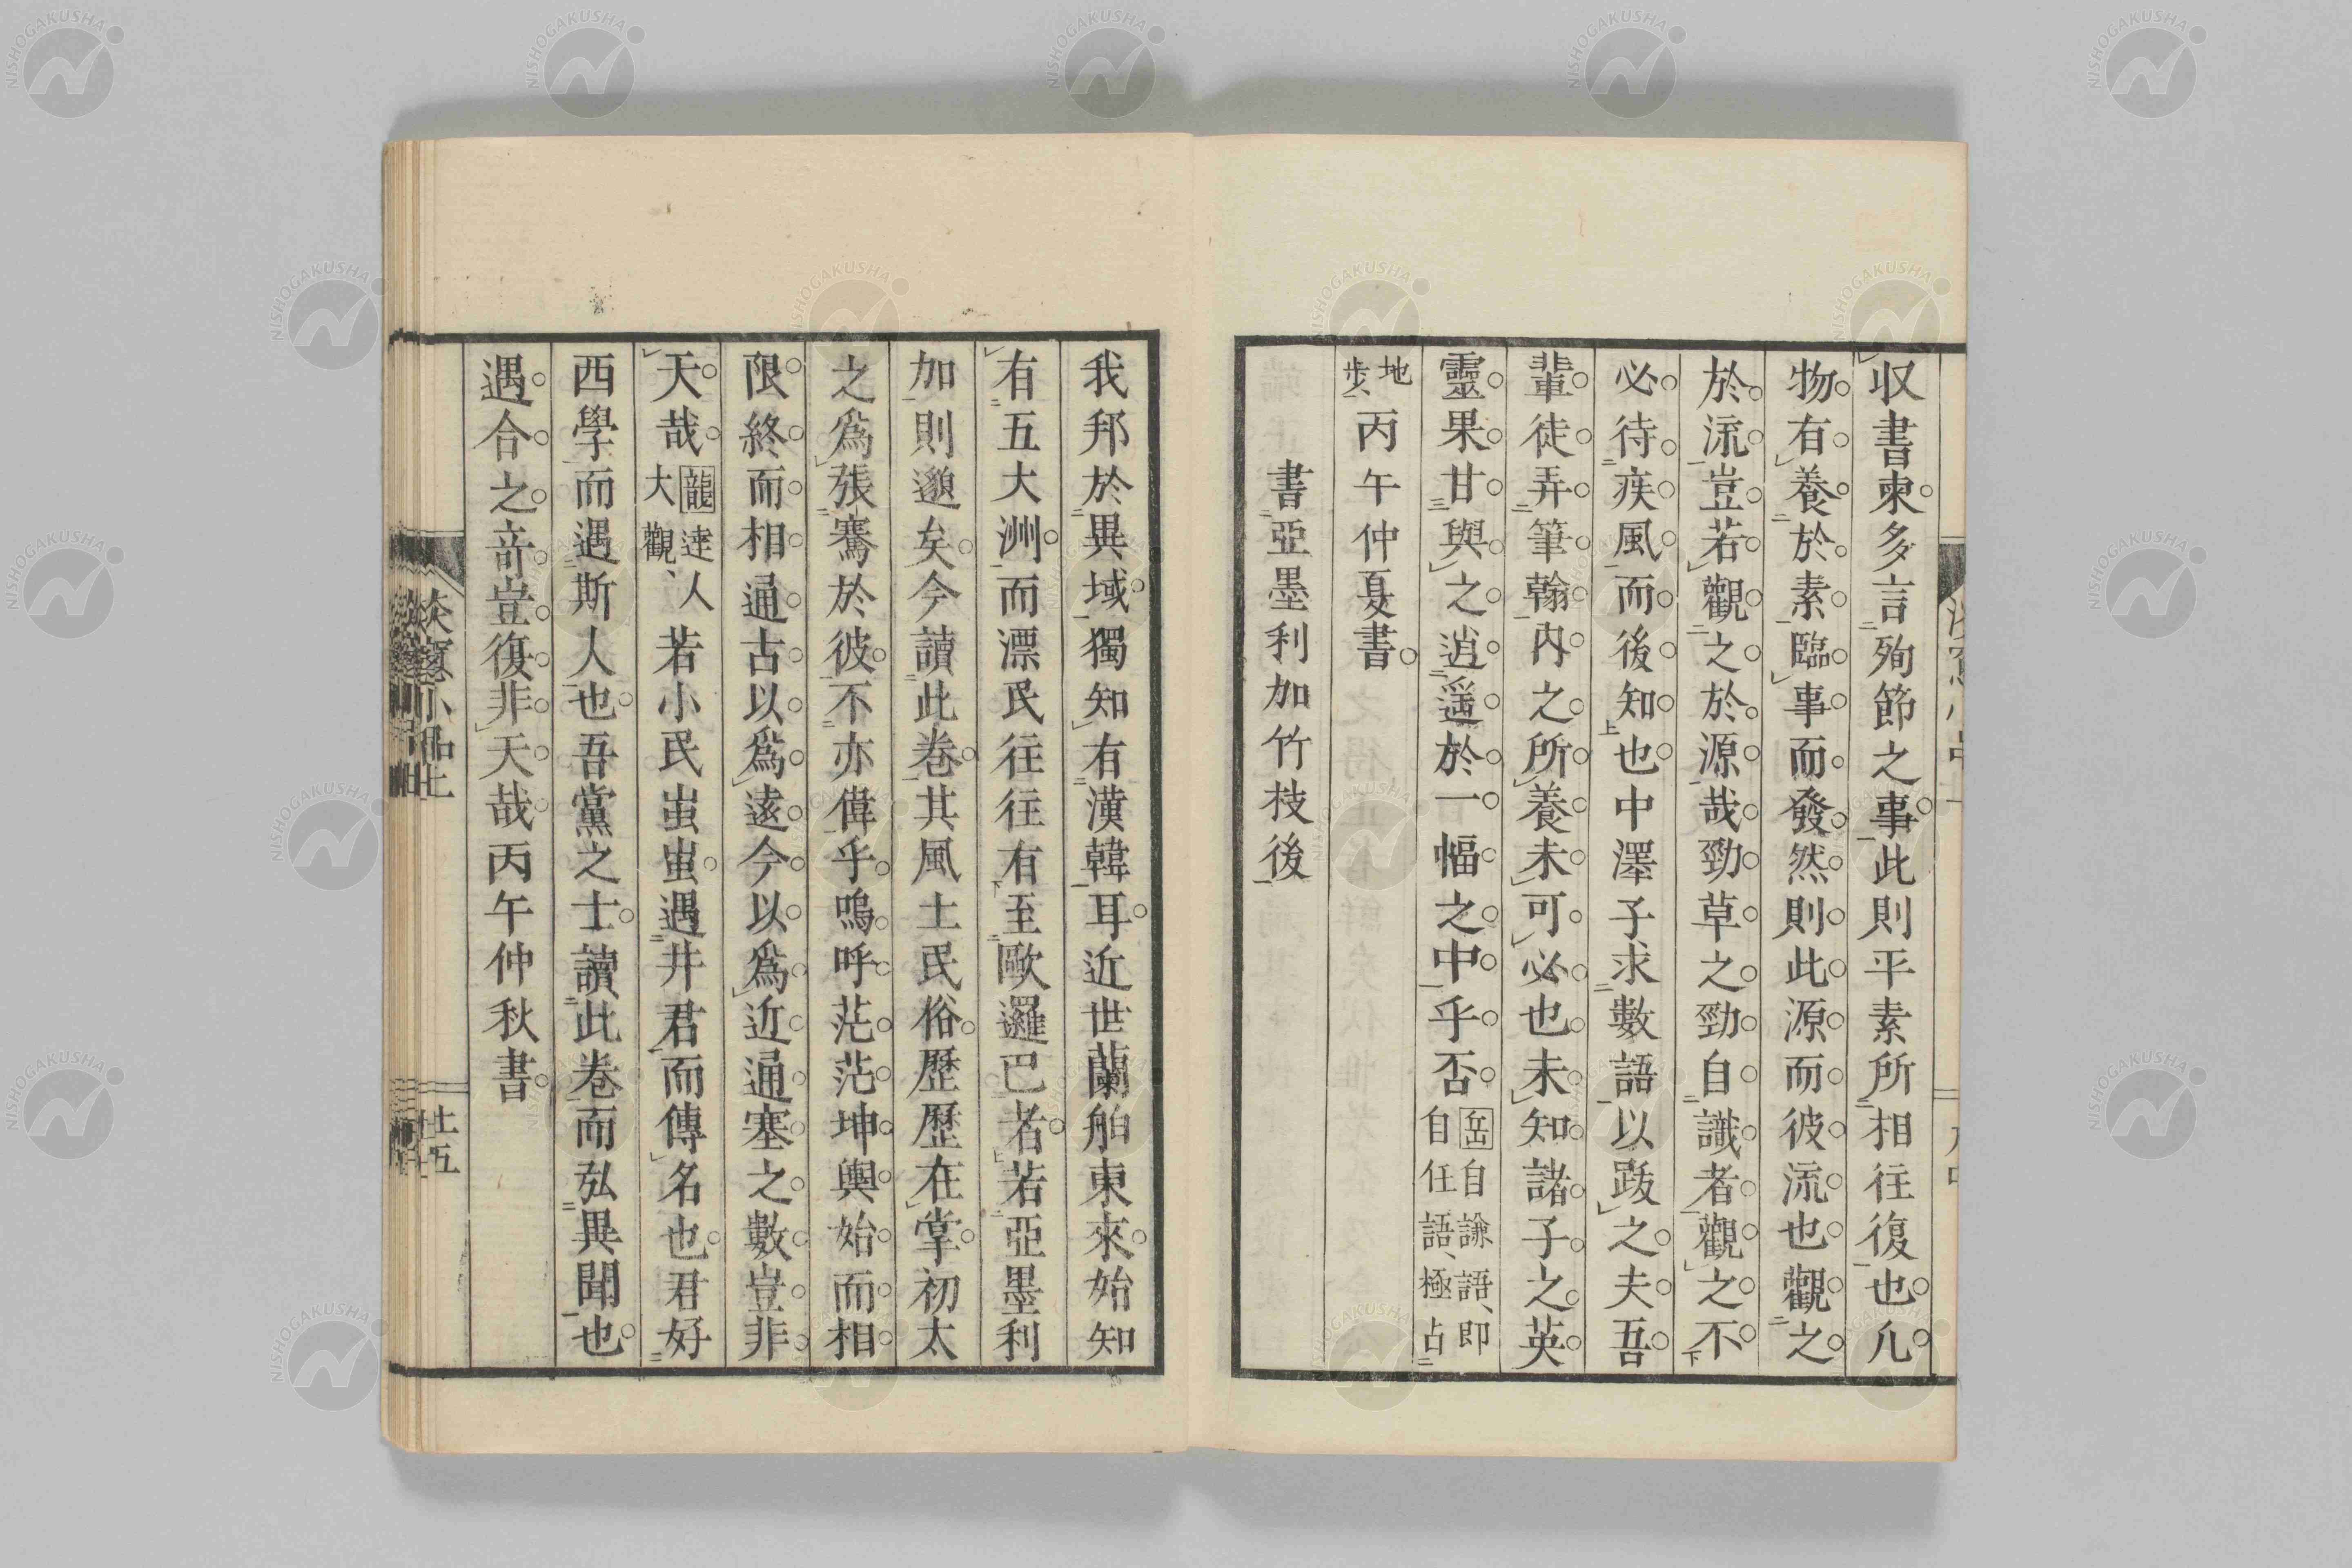 収書柬多言殉節之事此則平素所相往復也凡
物有養於素臨事而發然則此源而彼流也觀之
於流豈若觀之於源哉勁草之勁自識者觀之不
必待疾風而後知也中澤子求數語以跋之夫吾
輩徒弄筆翰内之所養未可必也未知諸子之英
靈果甘與之逍遥於一幅之中乎否 岳自謙語、即自任語、極占
地步、丙午仲夏書
書亞墨利加竹枝後
我邦於異域獨知有漢韓耳近世蘭舶東來始知
有五大洲而漂民往往有至歐邏巴者若亞墨利
加則邈矣今讀此卷其風土民俗歷歷在掌初太
之爲張騫於彼不亦偉乎嗚呼茫茫坤輿始而相
限終而相通古以爲遠今以爲近通塞之數豈非
天哉 龍達人大觀、若小民蚩蚩遇井君而傳名也君好
西學而遇斯人也吾黨之士讀此卷而弘異聞也
遇合之竒豈復非天哉丙午仲秋書
NISHOGAKUSHA